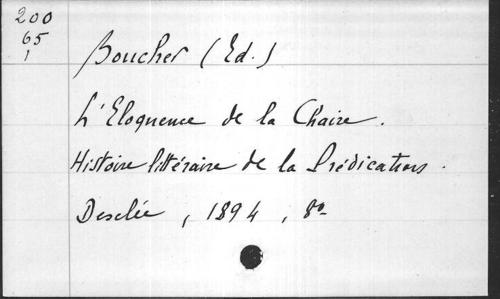 200
65
1
Boucher (Ed.)
L'Eloquence de la Chaire.
Histoire littéraire de la Prédication.
Desclée, 1894, 8º